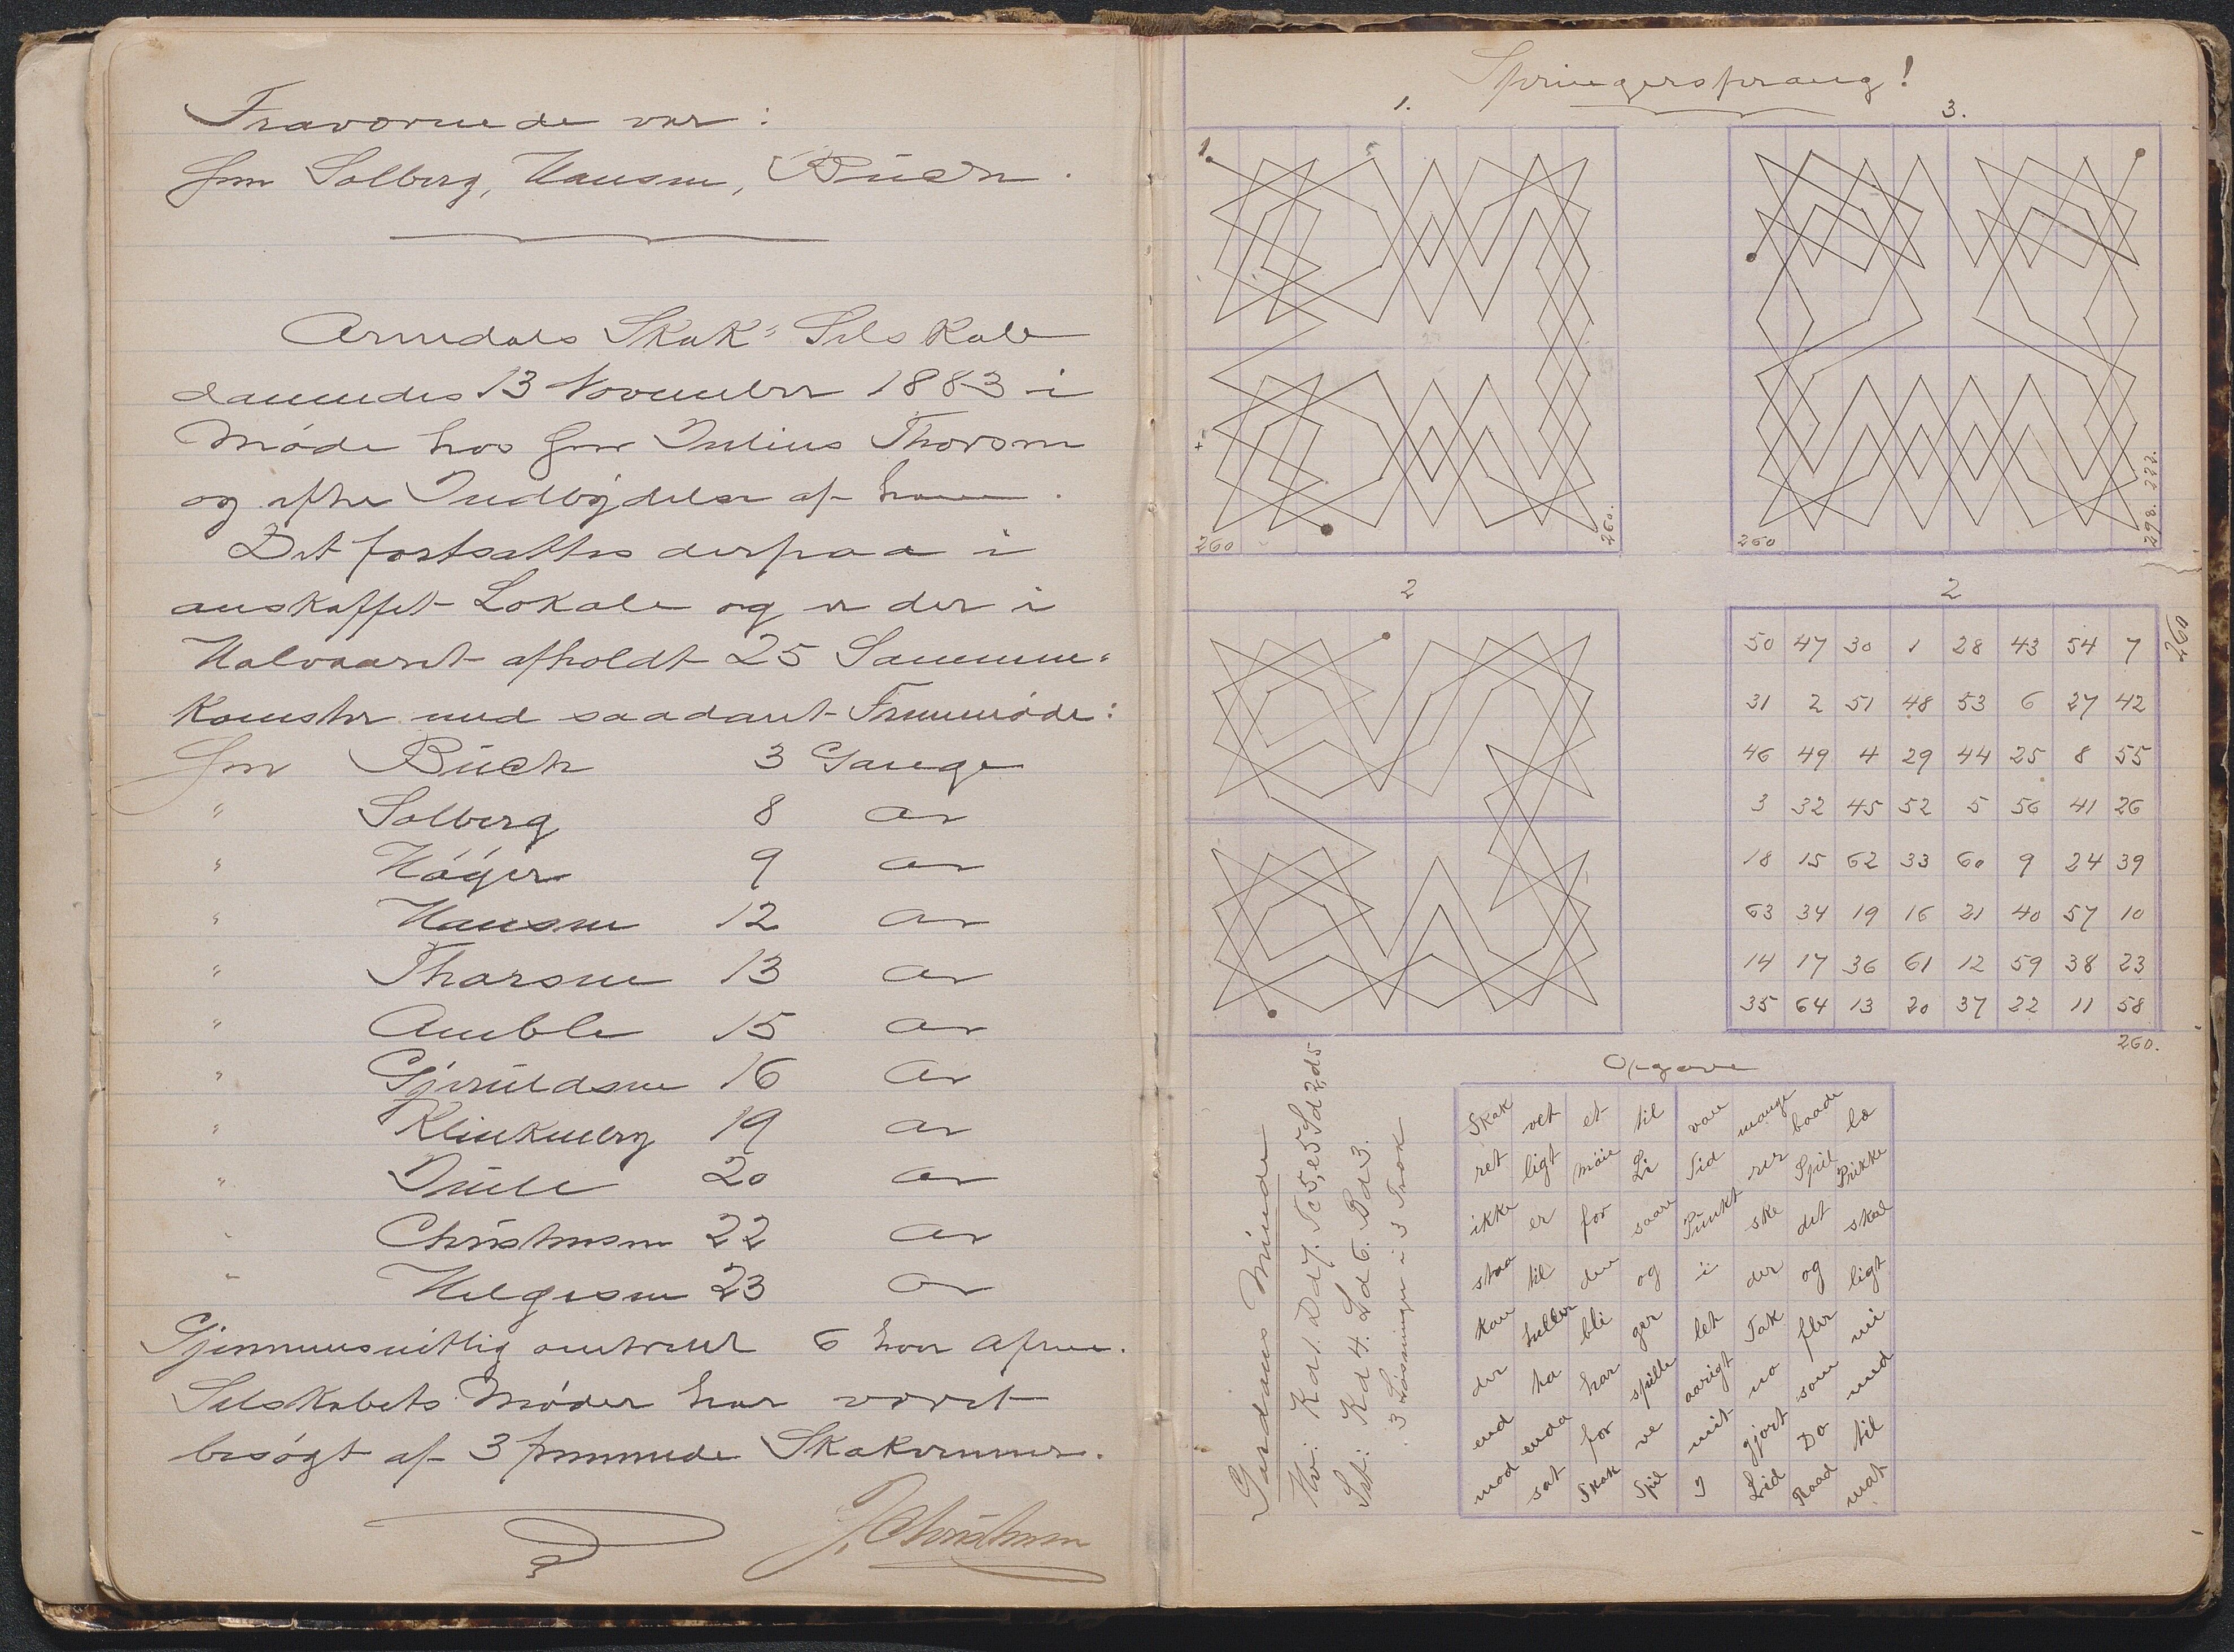 Fraværende var:
Herr Solberg, Hansen, Büch.
Arendals Skak-Selskab
dannedes 13 November 1883 i
Møde hos Herr Julius Thorsen
og efter Indbydelse af ham.
Det fortsattes derpaa i
anskaffet Lokale og er der i
Halvaaret afholdt 25 Sammen-
komster med saadant Fremmøde:
Herr Büch 3 Gange
" Solberg 8 "
" Höyer 9 "
" Hansen 12 "
" Thorsen 13 "
" Amble 15 "
" Gjeruldsen 16 "
" Klinkenberg 19 "
" Duue 20 "
" Christensen 22 "
" Helgesen 23 "
Gjennemsnitlig omtrent 6 hver Aften.
Selskabets Møder har været
besøgt af 3 fremmede Skakvenner.
J. Christensen
Springersprang!
1.
1
260
260.
3.
260
298. 222.
2
2
50 47 30 1 28 43 54 7
260
31 2 51 48 53 6 27 42
46 49 4 29 44 25 8 55
3 32 45 52 5 56 41 26
18 15 62 33 60 9 24 39
63 34 19 16 21 40 57 10
14 17 36 61 12 59 38 23
35 64 13 20 37 22 11 58
260.
Opgave
Skak vet et til van mange baade læ
ret ligt möie Li Tid rer Spil Prikke
ikke er for saare Punkt ske det skal
staa til den og i der og ligt
kan heller bli ger let Tak fler ni
der ha har spille aarigt no som med
end enda for ve mit gjort Do til
mod sat Skak Spil I Lid Raad mat
Hv: Kd1. Dd7. Tc5,e5 Sd2,d5
Srt: Kd4. Ld6. Bd3.
3 Løsninger i 3 Træk